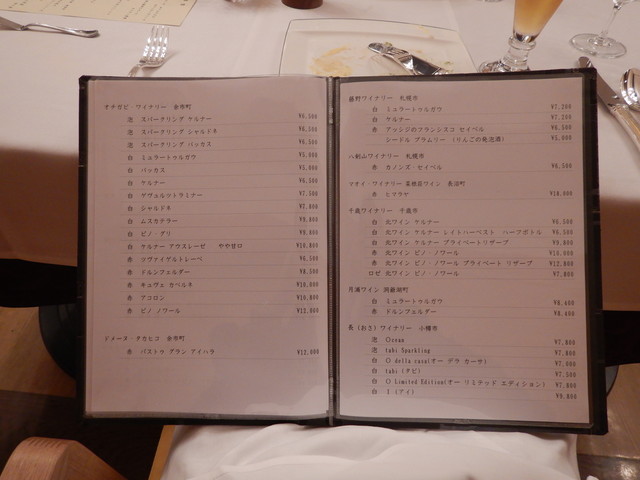 オチガビ ワイナリー 余市町
泡 スパークリング ケルナー ¥6,500
泡 スパークリング シャルドネ ¥6,500
泡 スパークリング バッカス ¥6,500
白 ミュラートゥルガウ ¥5,000
白 バッカス ¥5,000
白 ケルナー ¥6,500
白 ゲヴェルツトラミナー ¥7,500
白 シャルドネ ¥7,800
白 ムスカテラー ¥9,800
白 ピノ・グリ ¥9,800
白 ケルナー アウスレーゼ やや甘口 ¥10,800
赤 ツヴァイゲルトレーベ ¥6,500
赤 ドルンフェルダー ¥8,500
赤 キュヴェ カベルネ ¥10,800
赤 アコロン ¥10,800
赤 ピノ ノワール ¥12,000
ドメーヌ・タカヒコ 余市町
赤 パストゥ グラン アイハラ ¥12,000
藤野ワイナリー 札幌市
白 ミュラートゥルガウ ¥7,200
白 ケルナー ¥7,200
赤 アッシジのフランシスコ セイベル ¥6,500
シードル ブラムリー (りんごの発泡酒) ¥5,000
八剣山ワイナリー 札幌市
赤 カノンズ・セイベル ¥6,500
マオイ・ワイナリー 菜根荘ワイン 長沼町
赤 ヒアラヤ ¥18,000
千歳ワイナリー 千歳市
白 北ワイン ケルナー ¥6,500
白 北ワイン ケルナー レイトハーベスト ハーフボトル ¥6,500
白 北ワイン ケルナー プライベートリザーブ ¥9,800
赤 北ワイン ピノ・ノワール ¥10,000
赤 北ワイン ピノ・ノワール プライベート リザーブ ¥12,800
ロゼ 北ワイン ピノ・ノワール ¥7,800
月浦ワイン 洞爺湖町
白 ミュラートゥルガウ ¥8,400
赤 ドルンフェルダー ¥8,400
長(おさ)ワイナリー 小樽市
泡 Ocean ¥7,800
泡 tabi Sparkling ¥7,800
白 O della casa(オー デラ カーサ) ¥7,000
白 tabi(タビ) ¥7,500
白 O Limited Edition(オー リミテッド エディション) ¥7,800
白 I(アイ) ¥9,800